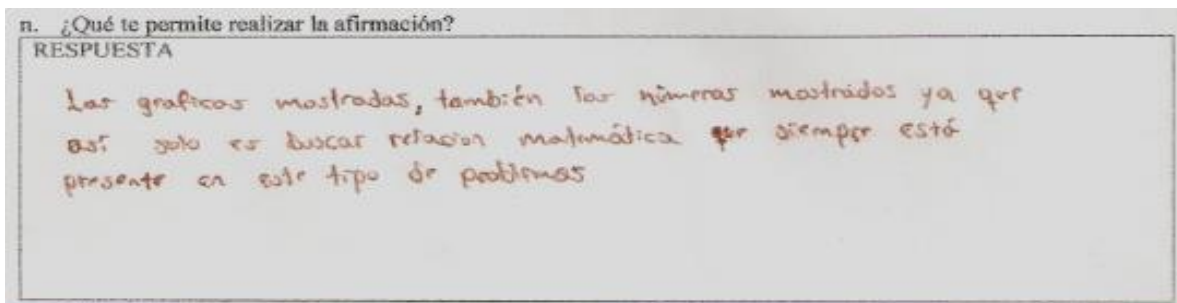 n. ¿Qué te permite realizar la afirmación?
RESPUESTA
Las graficas mostradas, también los números mostrados ya que
así solo es buscar relacion matemática que siempre está
presente en este tipo de problemas